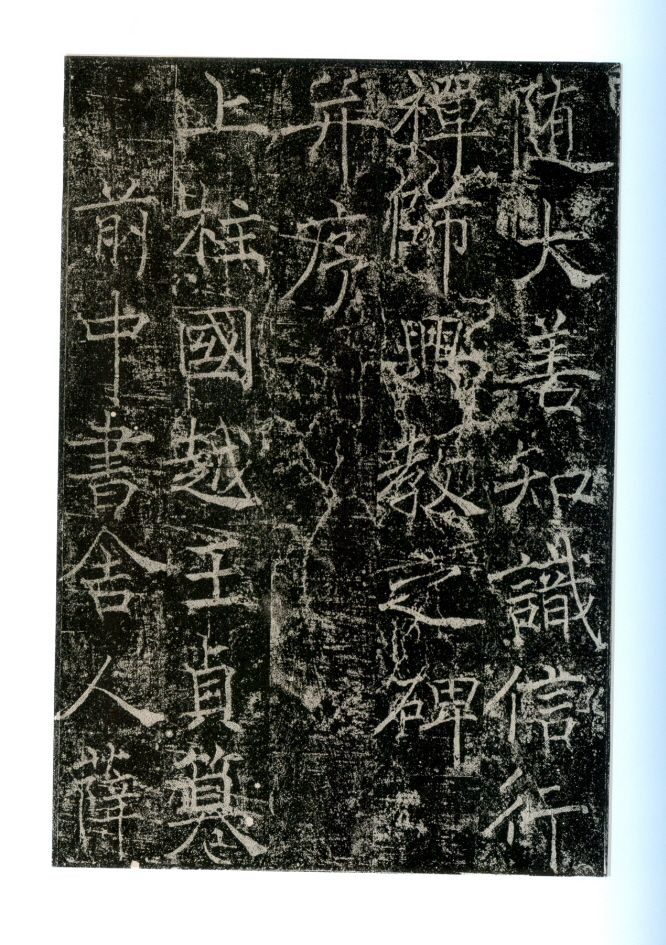 随大善知識信行
禪師興教之碑
并序
上柱國越王貞篡
前中書舎人薛